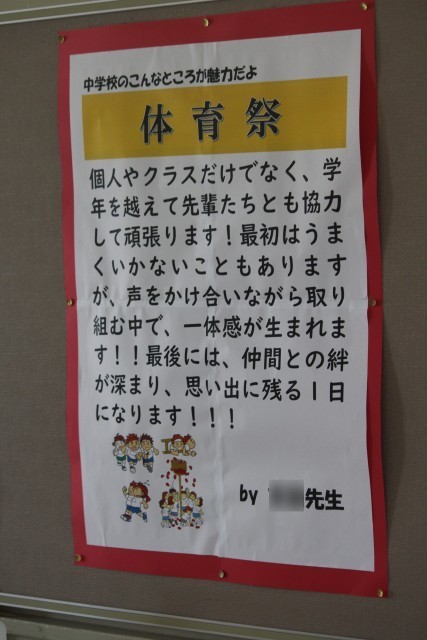 中学校のこんなところが魅力だよ
体育祭
個人やクラスだけでなく、学
年を越えて先輩たちとも協力
して頑張ります！最初はうま
くいかないこともあります
が、声をかけ合いながら取り
組む中で、一体感が生まれま
す！！最後には、仲間との絆
が深まり、思い出に残る１日
になります！！！
by 先生